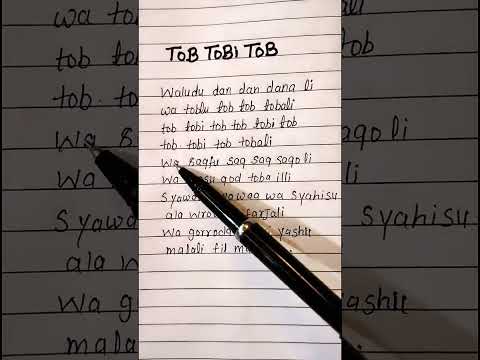 TOB TOBi TOB
Waludu dan dan dana li
wa toblu tob tob tobali
tob tobi tob tob tobi tob
tob tobi tob tobali
Wa saqfu saq saq saqo li
Wa qod toba illi
wa Syahisu
ala farjali
Wa yashii
malali fil